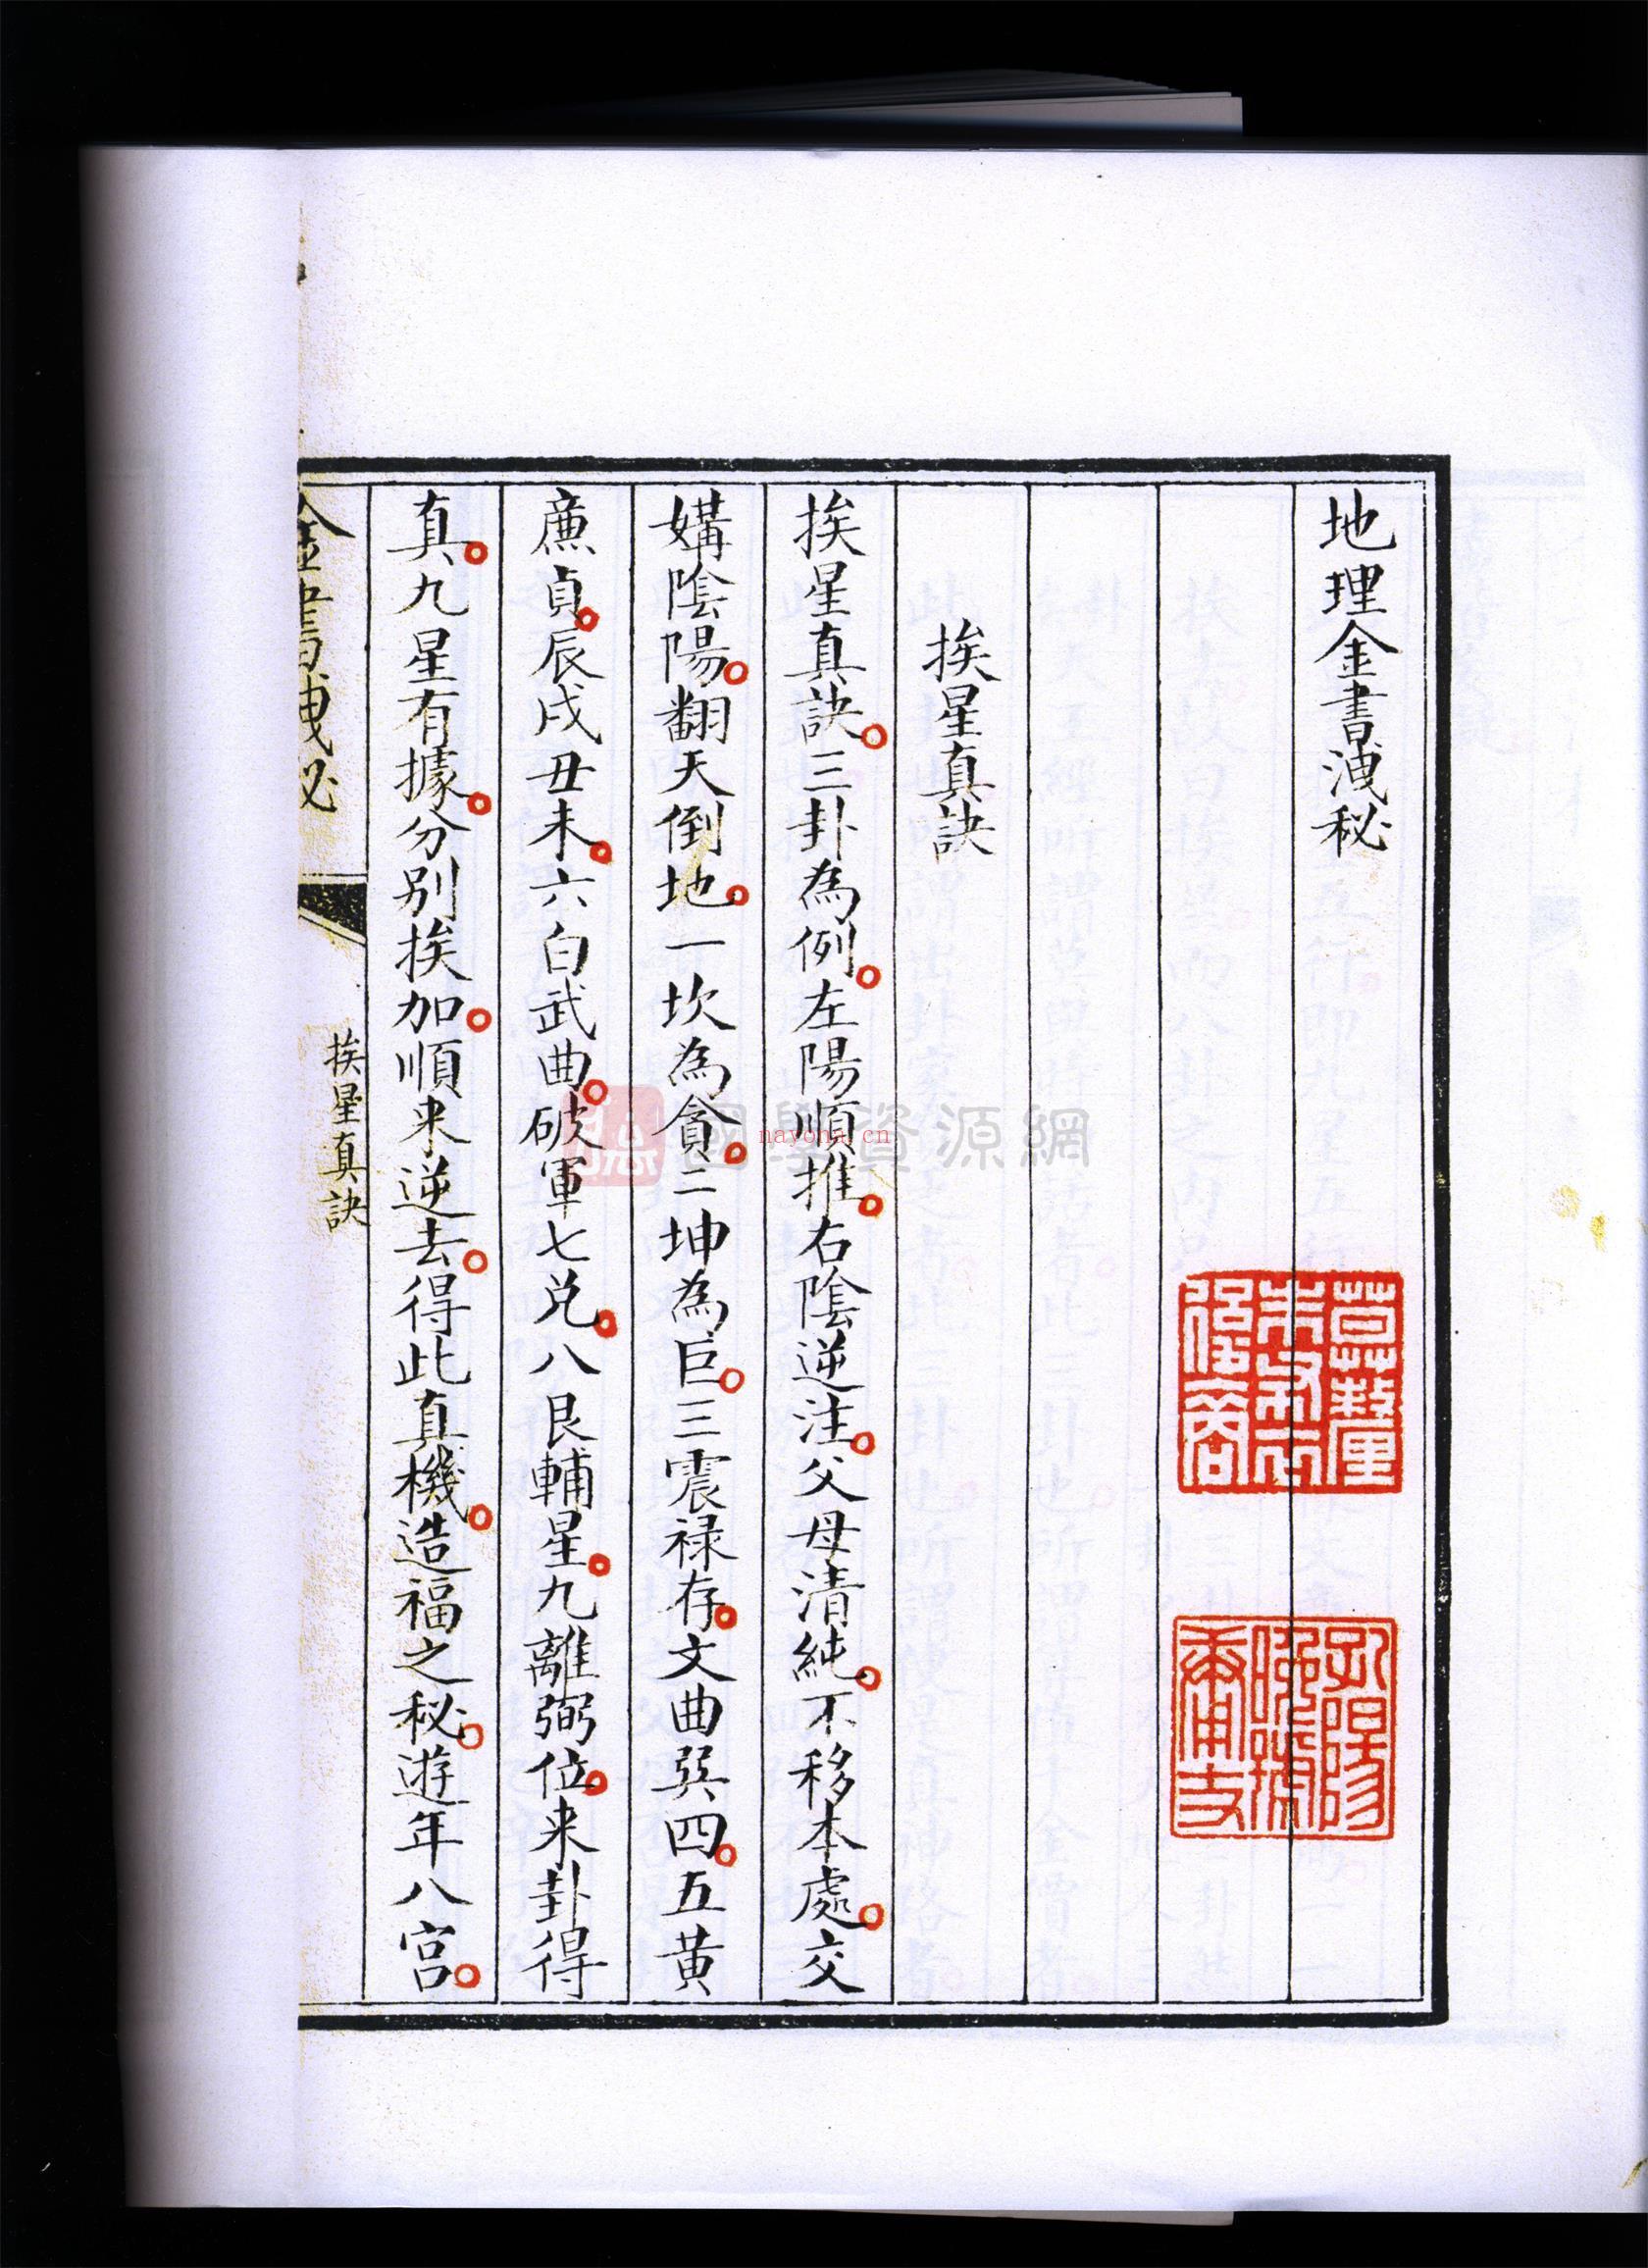 地理金書洩秘
挨星真訣
挨星真訣。三卦為例。左陽順推。右陰逆注。父母清純。不移本處。交
媾陰陽。翻天倒地。一坎為貪。二坤為巨。三震禄存。文曲巽四。五黄
亷貞。辰戌丑未。六白武曲。破軍七兑。八艮輔星。九離弼位。来卦得
真。九星有據。分別挨加。順来逆去。得此真機。造福之秘。遊年八宫。
金書洩秘
挨星真訣
國學資源網
nayona.cn